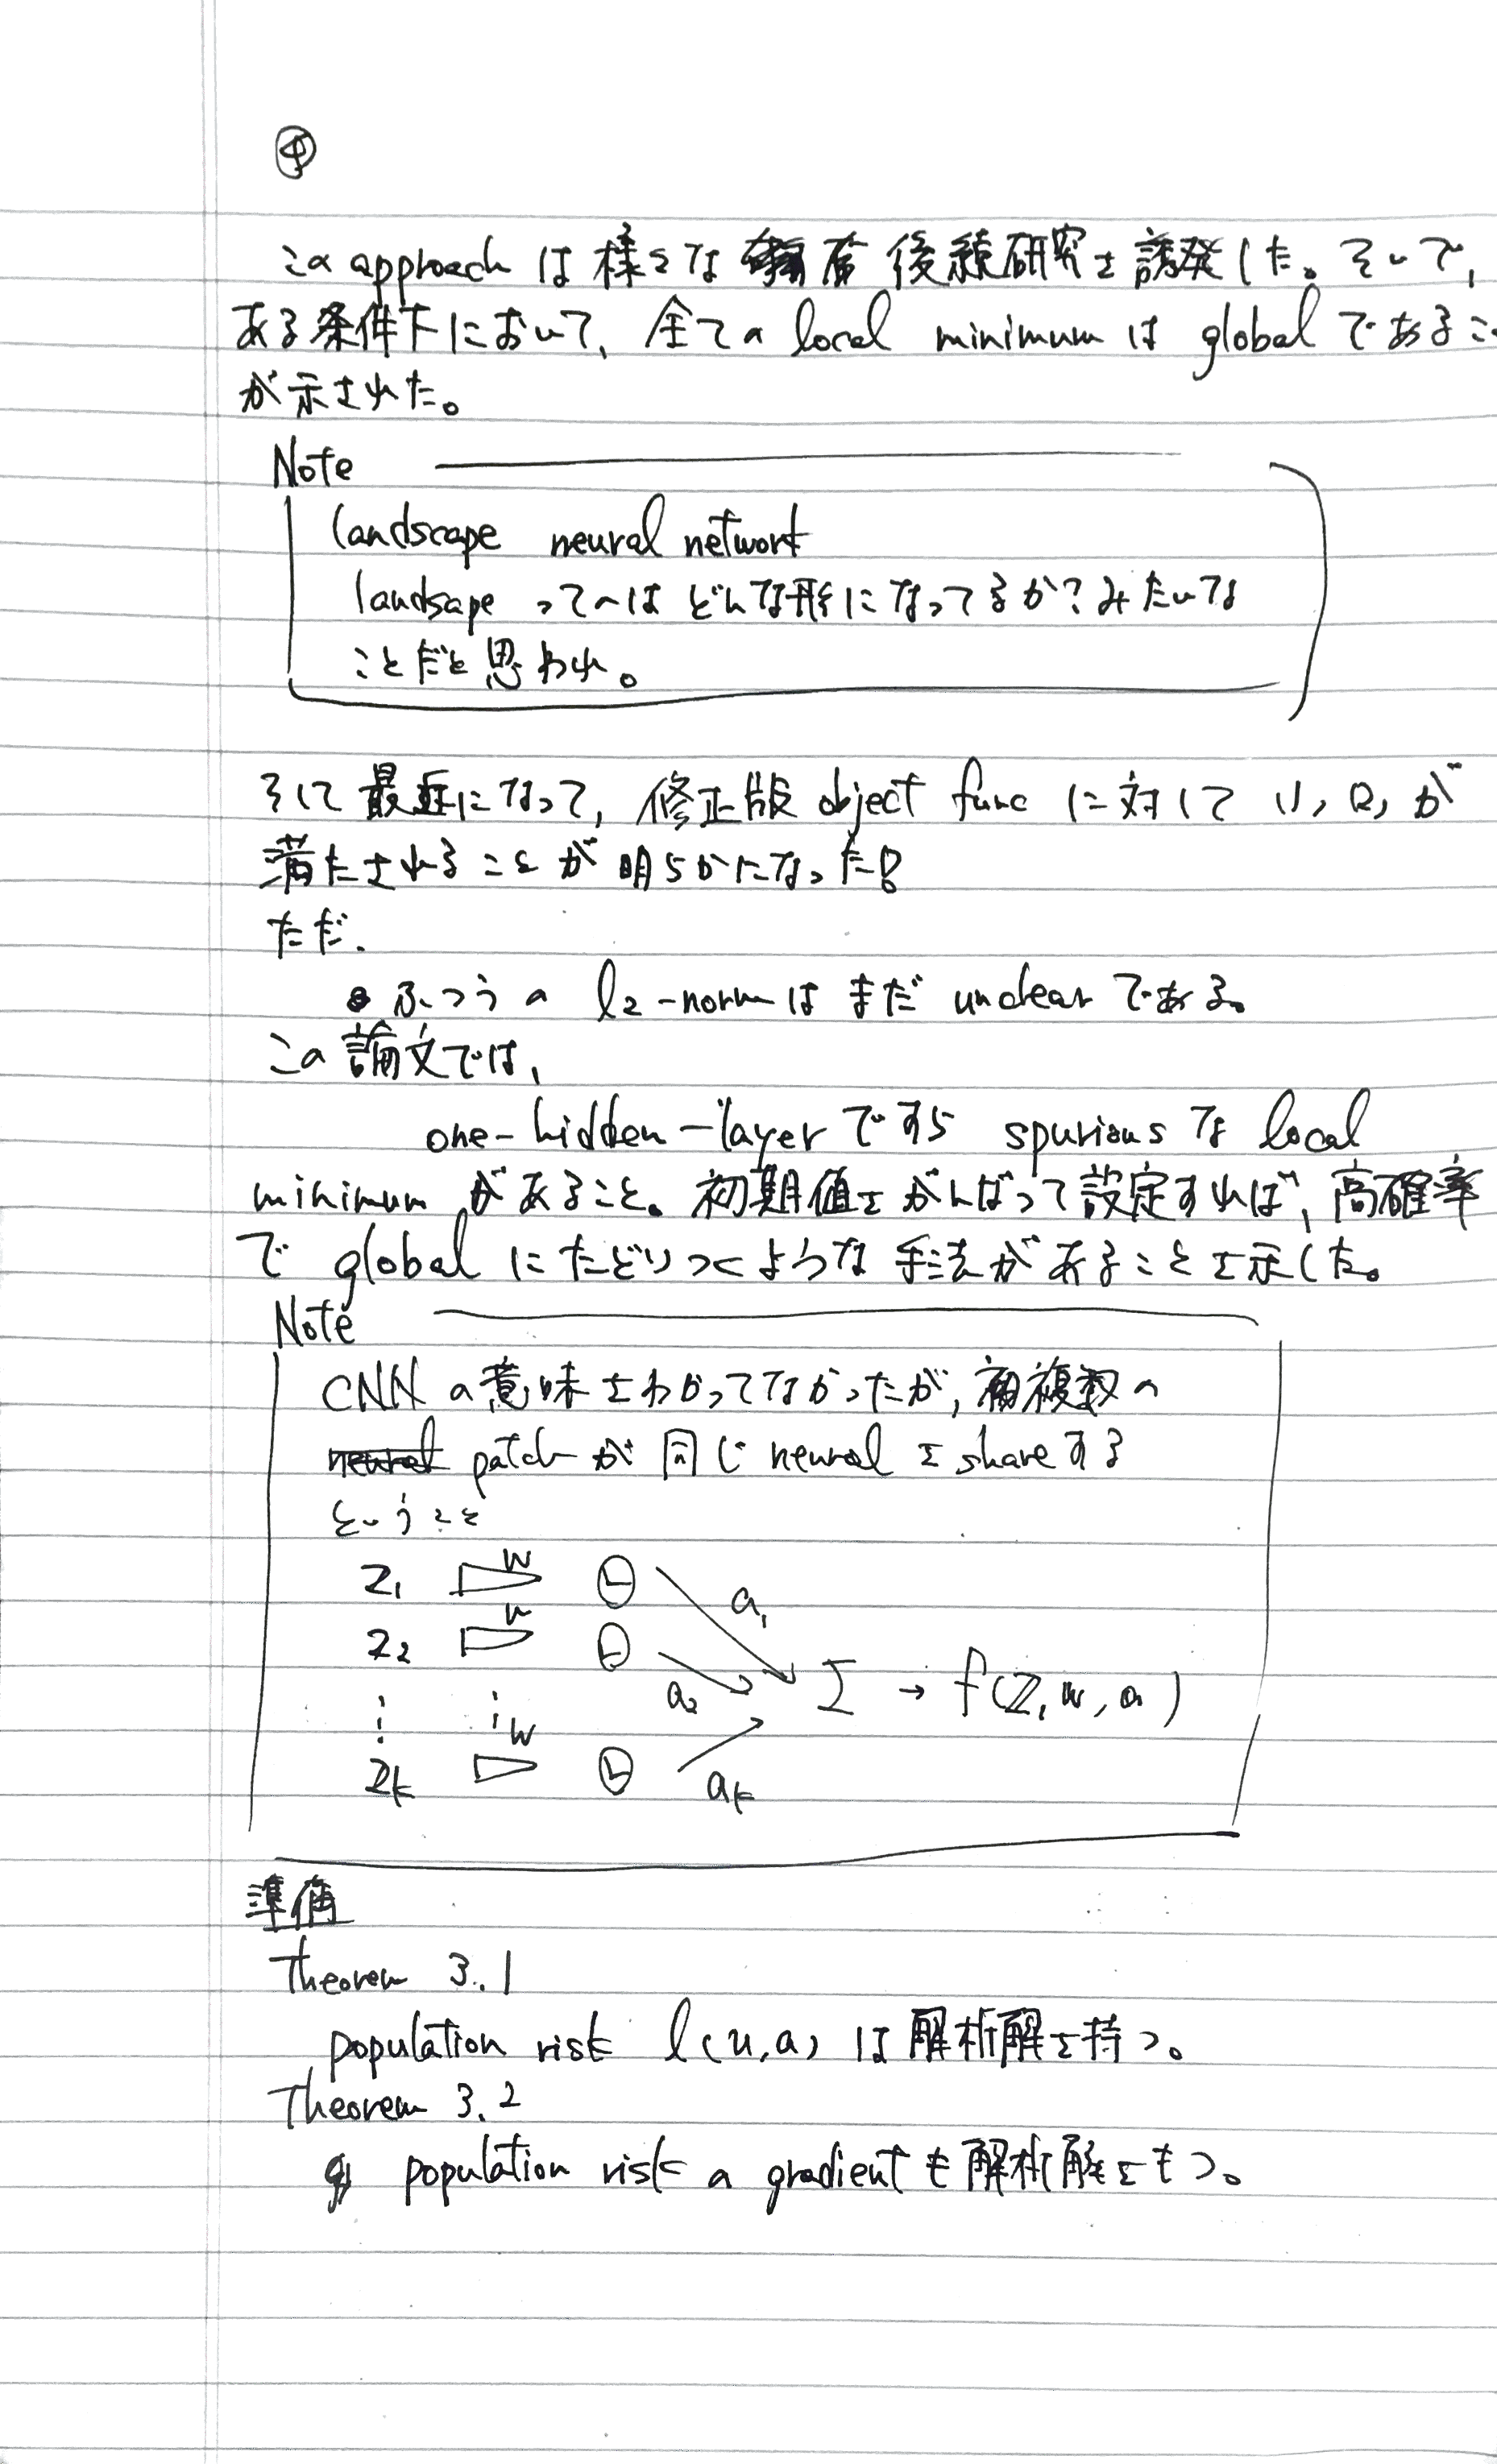 ④
この approach は様々な 後続研究を誘発した。そして,
ある条件下において、全ての local minimum は global であるこ
が示された。
Note
landscape neural network
landsape ってのはどんな形になってるか?みたいな
ことだと思われ。
そして最近になって, 修正版 object func に対して (1), (2) が
満たされることが明らかになった!
ただ.
• ふつうの l2-norm はまだ unclear である。
この論文では,
one-hidden-layer ですら spurious な local
minimum があること。初期値をがんばって設定すれば, 高確率
で global にたどりつくような手法があることを示した。
Note
CNN の意味をわかってなかったが, 複数の
neural patch が同じ neural を share する
ということ
Z1 w a1
Z2 w a2
Σ → f(Z, w, a)
⋮ ⋮ w
Zk ak
準備
Theorem 3.1
population risk l(u,a) は解析解を持つ。
Theorem 3.2
population risk の gradient も解析解をもつ。